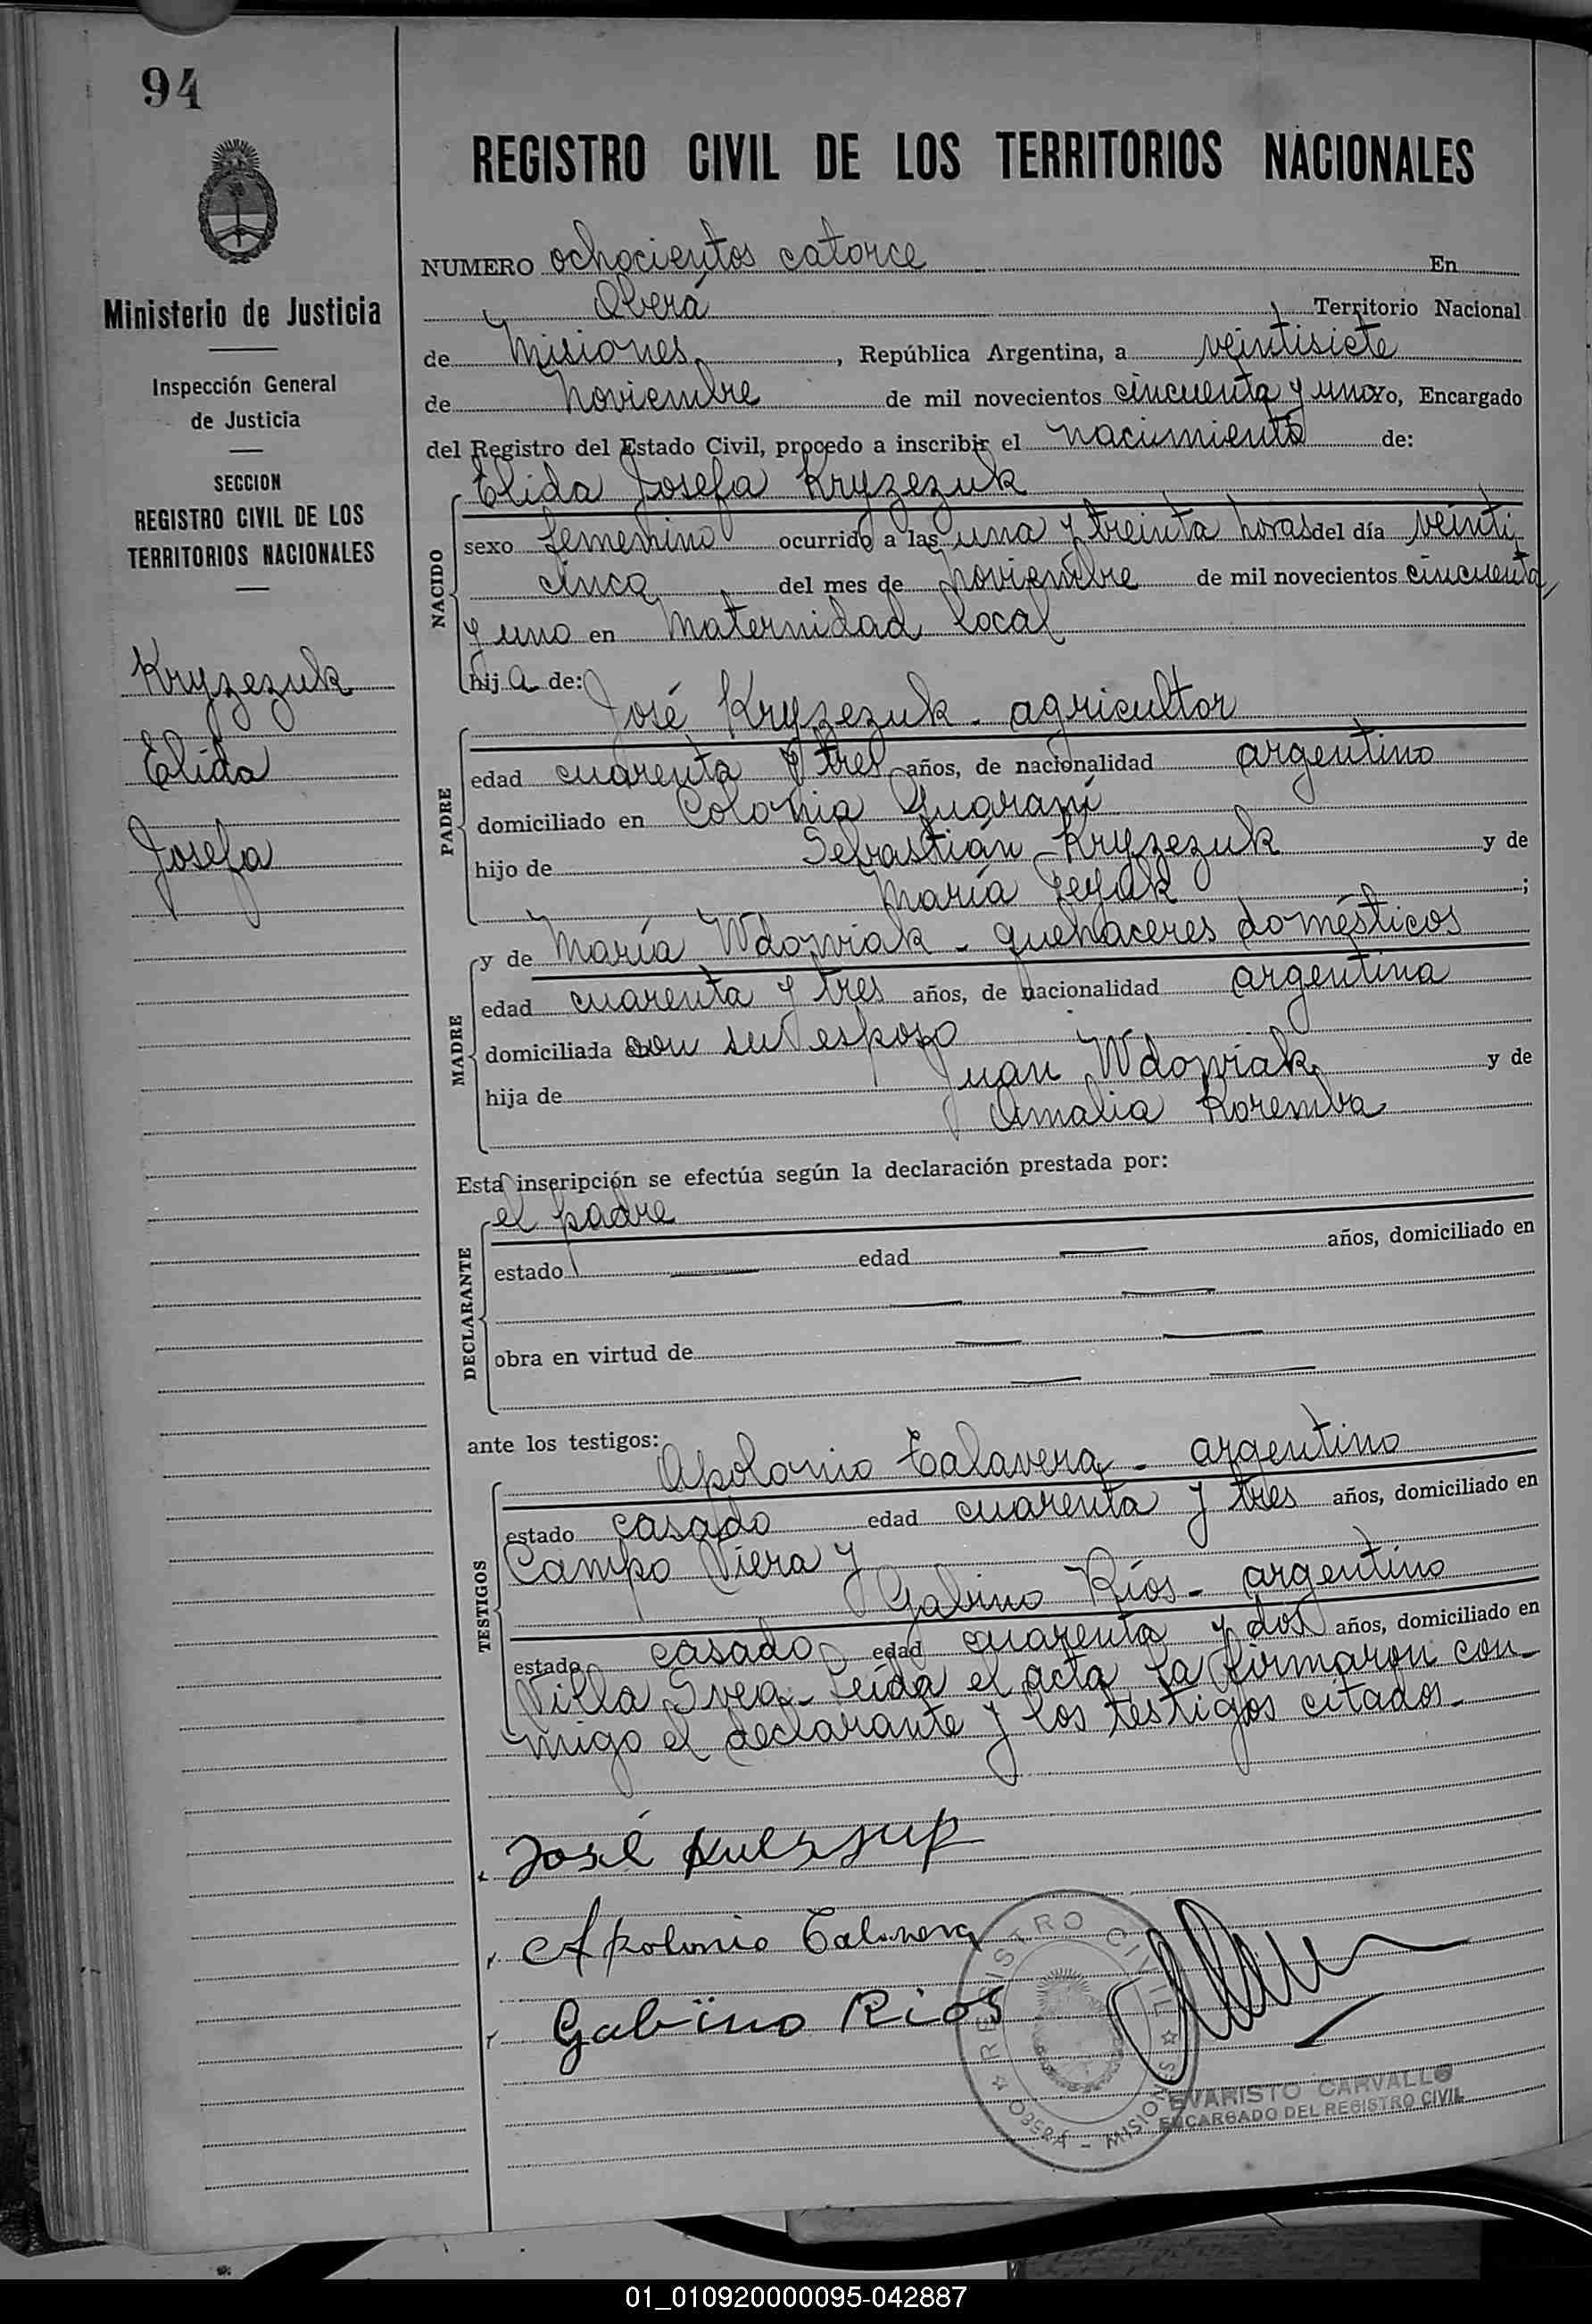 94
REGISTRO CIVIL DE LOS TERRITORIOS NACIONALES
Ministerio de Justicia
Inspección General
de Justicia
SECCION
REGISTRO CIVIL DE LOS
TERRITORIOS NACIONALES
Kryzezuk
Elida
Josefa
NUMERO ochocientos catorce En
Oberá Territorio Nacional
de Misiones, República Argentina, a veintisiete
de noviembre de mil novecientos cincuenta y uno yo, Encargado
del Registro del Estado Civil, procedo a inscribir el nacimiento de:
NACIDO
Elida Josefa Kryzezuk
sexo femenino ocurrido a las una y treinta horas del día veinti
cinco del mes de noviembre de mil novecientos cincuenta
y uno en Maternidad local
hija de:
PADRE
José Kryzezuk - agricultor
edad cuarenta y tres años, de nacionalidad argentino
domiciliado en Colonia Guaraní
hijo de Sebastián Kryzezuk y de
María ;
MADRE
y de María Wdowiak - quehaceres domésticos
edad cuarenta y tres años, de nacionalidad argentina
domiciliada con su esposo
hija de Juan Wdowiak y de
Amalia Koremba
Esta inscripción se efectúa según la declaración prestada por:
DECLARANTE
el padre
estado — edad — años, domiciliado en
— —
obra en virtud de — —
— —
ante los testigos:
TESTIGOS
Apolonio Talavera - argentino
estado casado edad cuarenta y tres años, domiciliado en
Campo Viera y
Gabino Ríos - argentino
estado casado edad cuarenta y dos años, domiciliado en
Villa Svea - Leída el acta, la firmaron con
migo el declarante y los testigos citados -
José
Apolonio Talavera
Gabino Rios
REGISTRO CIVIL
OBERÁ - MISIONES
EVARISTO CARVALLO
ENCARGADO DEL REGISTRO CIVIL
01_010920000095-042887